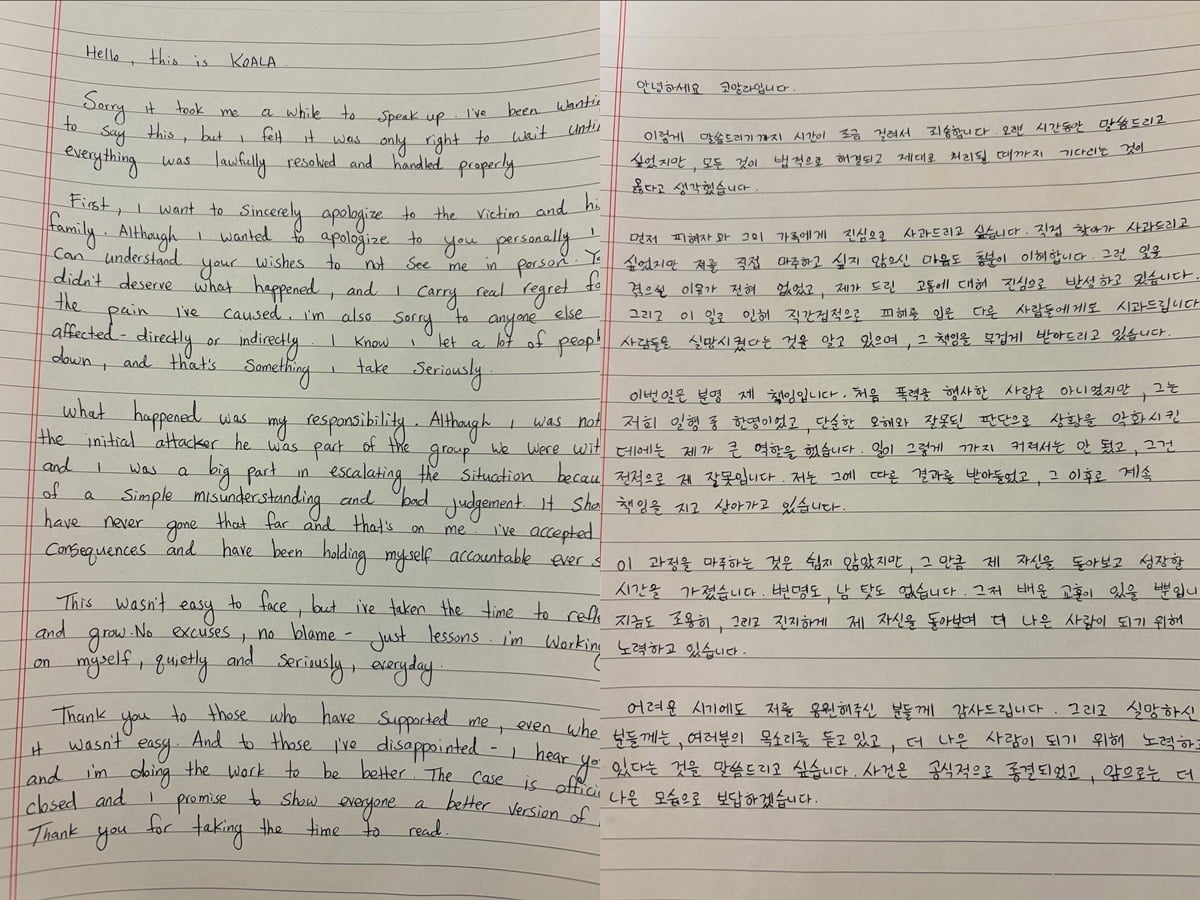 Hello, this is KOALA
Sorry it took me a while to speak up. I've been
to say this, but i felt it was only right to wait
everything was lawfully resolved and handled properly
First, i want to sincerely apologize to the victim and
family. Although i wanted to apologize to you personally i
can understand your wishes to not see me in person.
didn't deserve what happened, and i carry real regret
the pain i've caused. i'm also sorry to anyone else
affected - directly or indirectly. i know i let a lot of
down, and that's something i take seriously.
what happened was my responsibility. Although i was not
the initial attacker he was part of the group we were
and i was a big part in escalating the situation
of a simple misunderstanding and bad judgement. It
have never gone that far and that's on me. i've accepted
consequences and have been holding myself accountable ever
This wasn't easy to face, but i've taken the time to
and grow. No excuses, no blame - just lessons. i'm
on myself, quietly and seriously, everyday.
Thank you to those who have supported me, even
it wasn't easy. And to those i've disappointed - i hear
and i'm doing the work to be better. The case is
closed and i promise to show everyone a better version of
Thank you for taking the time to read.
안녕하세요 코알라입니다.
이렇게 말씀드리기까지 시간이 조금 걸려서 죄송합니다. 오랜 시간동안 말씀드리고
싶었지만, 모든 것이 법적으로 해결되고 제대로 처리될 때까지 기다리는 것이
옳다고 생각했습니다.
먼저 피해자와 그의 가족에게 진심으로 사과드리고 싶습니다. 직접 찾아가 사과드리고
싶었지만 저를 직접 마주하고 싶지 않으신 마음도 충분이 이해합니다. 그런 일을
겪으실 이유가 전혀 없었고, 제가 드린 고통에 대해 진심으로 반성하고 있습니다.
그리고 이 일로 인해 직간접적으로 피해를 입은 다른 사람들에게도 사과드립니다
사람들을 실망시켰다는 것을 알고 있으며, 그 책임을 무겁게 받아드리고 있습니다.
이번일은 분명 제 책임입니다. 처음 폭력을 행사한 사람은 아니었지만, 그는
저희 일행 중 한명이었고, 단순한 오해와 잘못된 판단으로 상황을 악화시킨
데에는 제가 큰 역할을 했습니다. 일이 그렇게 까지 커져서는 안 됬고, 그건
전적으로 제 잘못입니다. 저는 그에 따른 결과를 받아들었고, 그 이후로 계속
책임을 지고 살아가고 있습니다.
이 과정을 마주하는 것은 쉽지 않았지만, 그 만큼 제 자신을 돌아보고 성장할
시간을 가졌습니다. 변명도, 남 탓도 없습니다. 그저 배운 교훈이 있을 뿐입니
지금도 조용히, 그리고 진지하게 제 자신을 돌아보며 더 나은 사람이 되기 위해
노력하고 있습니다.
어려운 시기에도 저를 응원해주신 분들께 감사드립니다. 그리고 실망하신
분들께는, 여러분의 목소리를 듣고 있고, 더 나은 사람이 되기 위해 노력하고
있다는 것을 말씀드리고 싶습니다. 사건은 공식적으로 종결되었고, 앞으로는 더
나은 모습으로 보답하겠습니다.